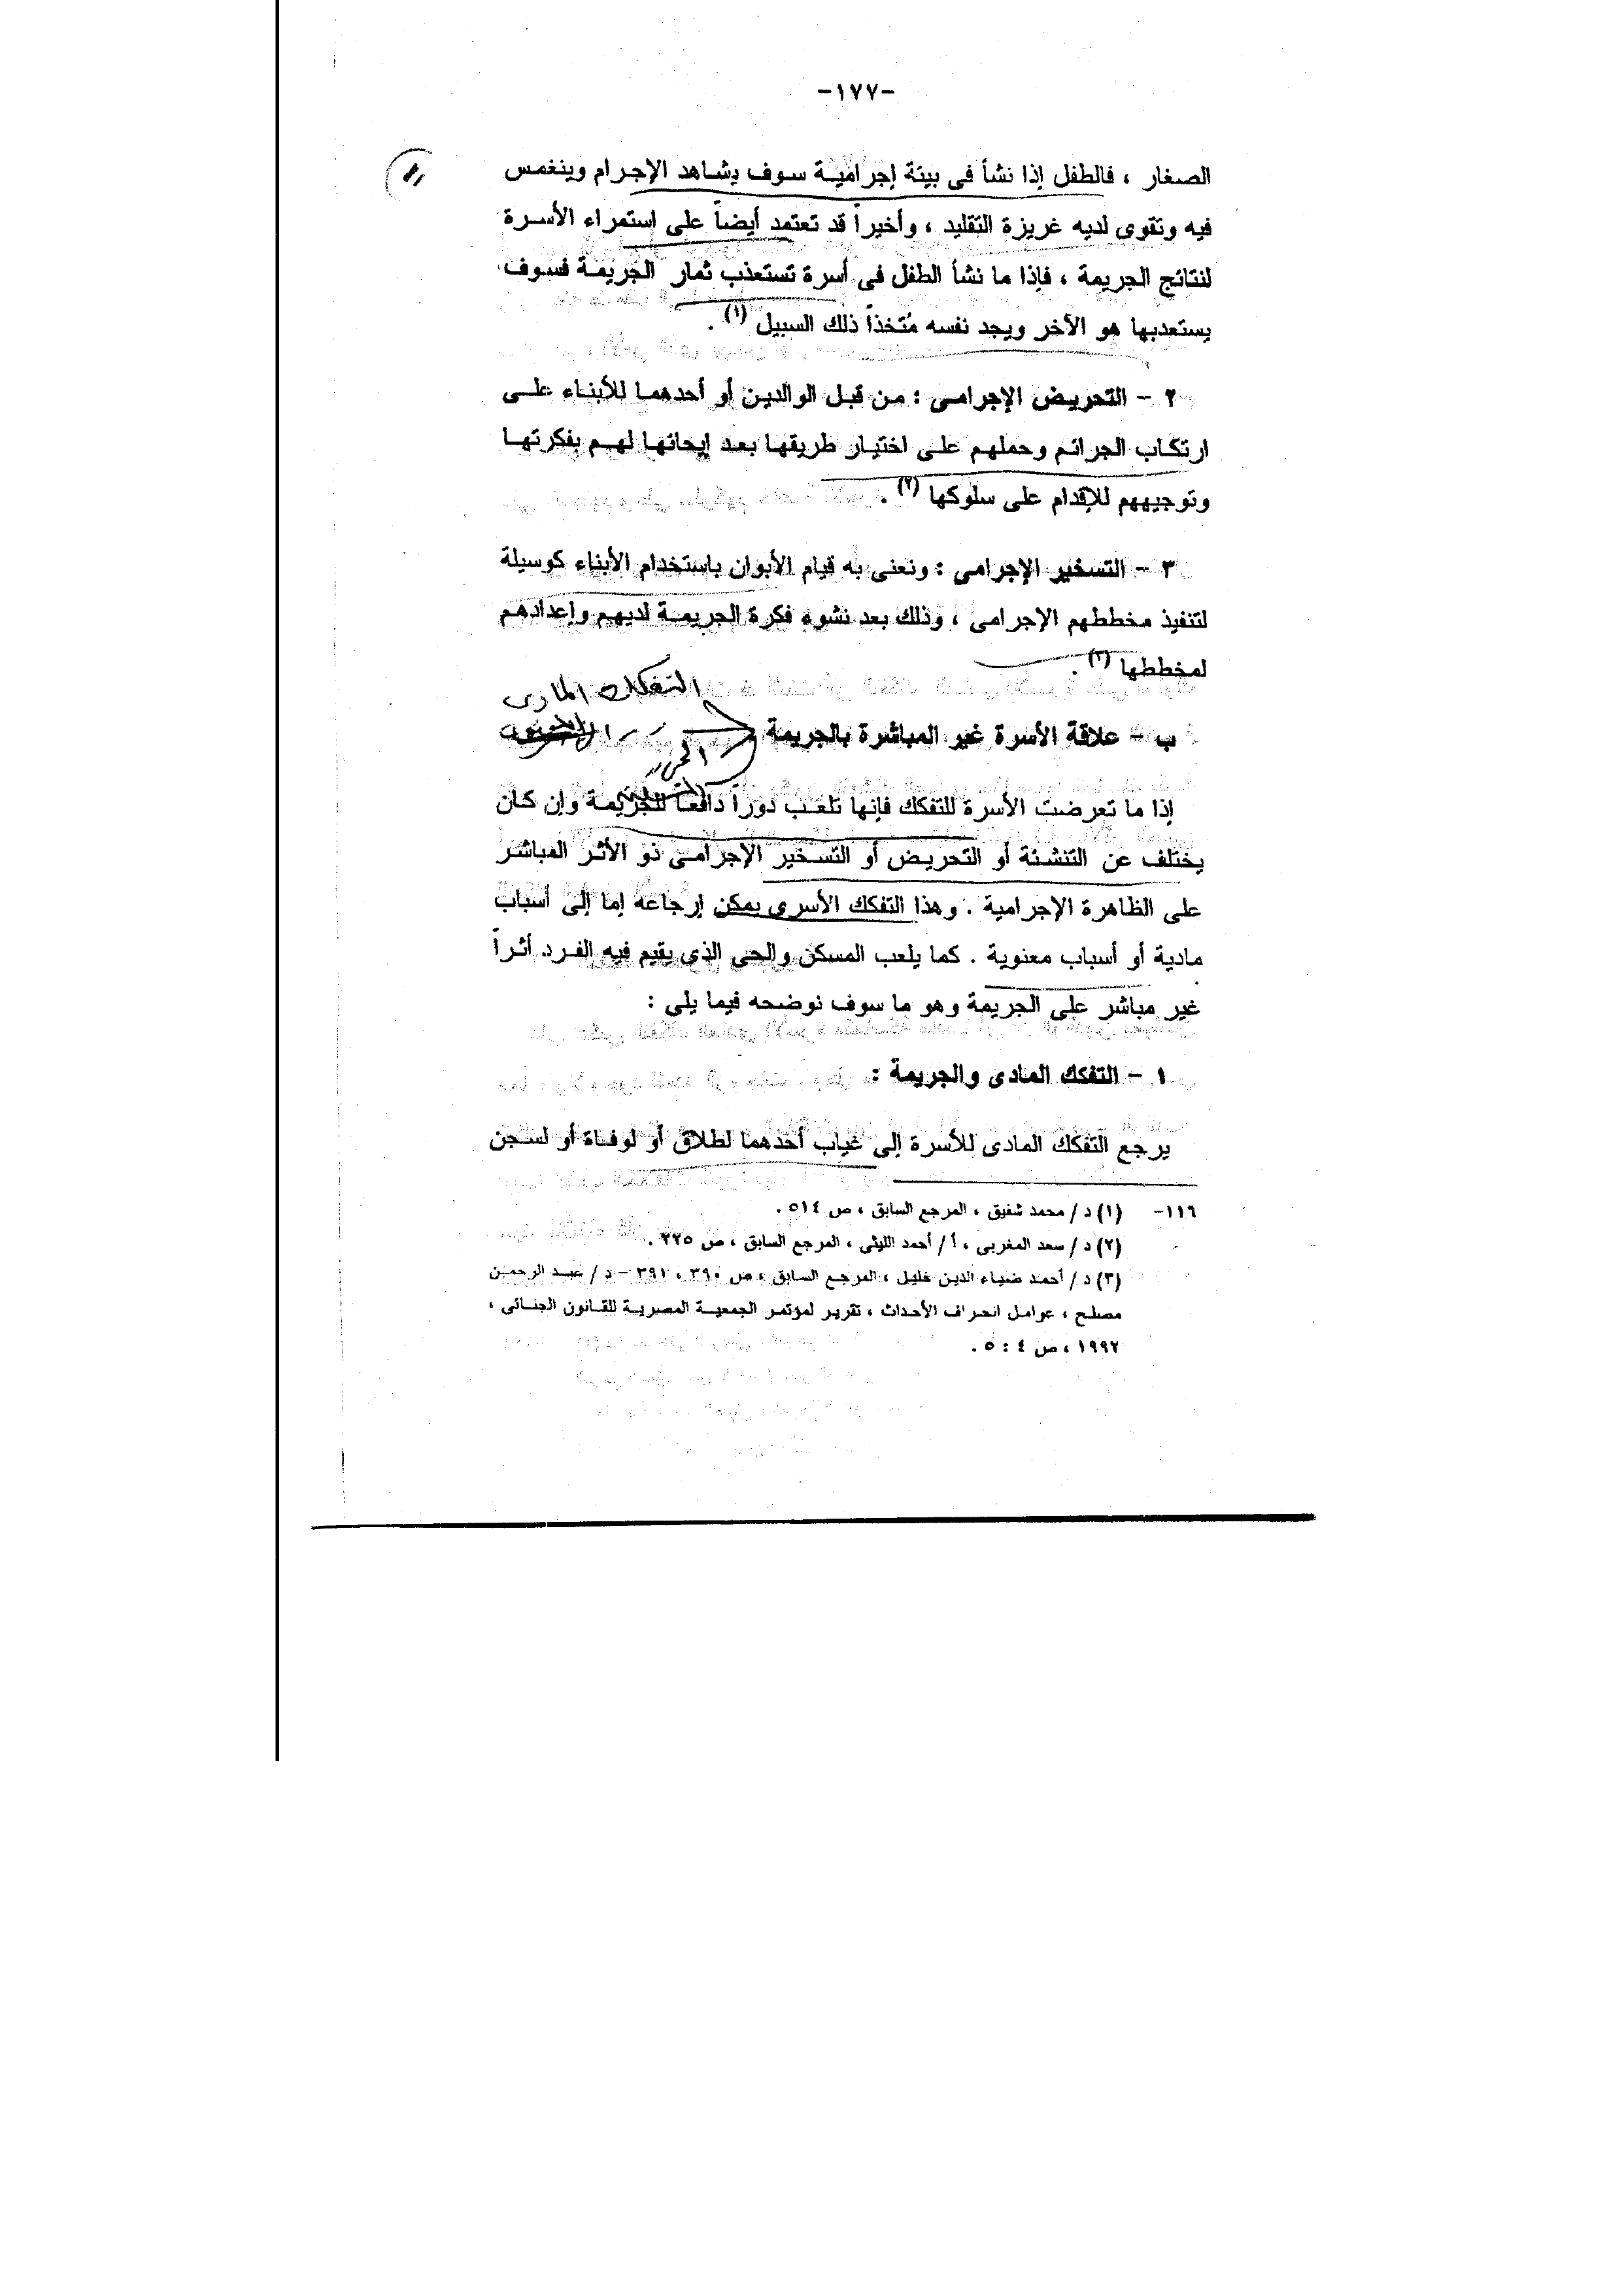 -١٧٧-
الصغار ، فالطفل إذا نشأ فى بيئة إجرامية سوف يشاهد الإجرام وينغمس
فيه وتقوى لديه غريزة التقليد ، وأخيراً قد تعتمد أيضاً على استمراء الأسرة
لنتائج الجريمة ، فإذا ما نشأ الطفل فى أسرة تستعذب ثمار الجريمة فسوف
يستعذبها هو الآخر ويجد نفسه مُتخذاً ذلك السبيل (١) .
٢ - التحريض الإجرامى : من قبل الوالدين أو أحدهما للأبناء على
ارتكاب الجرائم وحملهم على اختيار طريقها بعد إيحائها لهم بفكرتها
وتوجيههم للإقدام على سلوكها (٢) .
٣ - التسخير الإجرامى : ونعنى به قيام الأبوان باستخدام الأبناء كوسيلة
لتنفيذ مخططهم الإجرامى ، وذلك بعد نشوء فكرة الجريمة لديهم وإعدادهم
لمخططها (٣) .
التفكك المادى
ب - علاقة الأسرة غير المباشرة بالجريمة
إذا ما تعرضت الأسرة للتفكك فإنها تلعب دوراً دافعاً للجريمة وإن كان
يختلف عن التنشئة أو التحريض أو التسخير الإجرامى ذو الأثر المباشر
على الظاهرة الإجرامية . وهذا التفكك الأسرى يمكن إرجاعه إما إلى أسباب
مادية أو أسباب معنوية . كما يلعب المسكن والحى الذى يقيم فيه الفرد أثراً
غير مباشر على الجريمة وهو ما سوف نوضحه فيما يلى :
١ - التفكك المادى والجريمة :
يرجع التفكك المادى للأسرة إلى غياب أحدهما لطلاق أو لوفاة أو لسجن
١١٦- (١) د / محمد شفيق ، المرجع السابق ، ص ٥١٤ .
(٢) د / سعد المغربى ، أ / أحمد الليثى ، المرجع السابق ، ص ٢٢٥ .
(٣) د / أحمد ضياء الدين خليل ، المرجع السابق ، ص ٣٩٠ ، ٣٩١ - د / عبد الرحمن
مصلح ، عوامل انحراف الأحداث ، تقرير لمؤتمر الجمعية المصرية للقانون الجنائى ،
١٩٩٢ ، ص ٤ : ٥ .